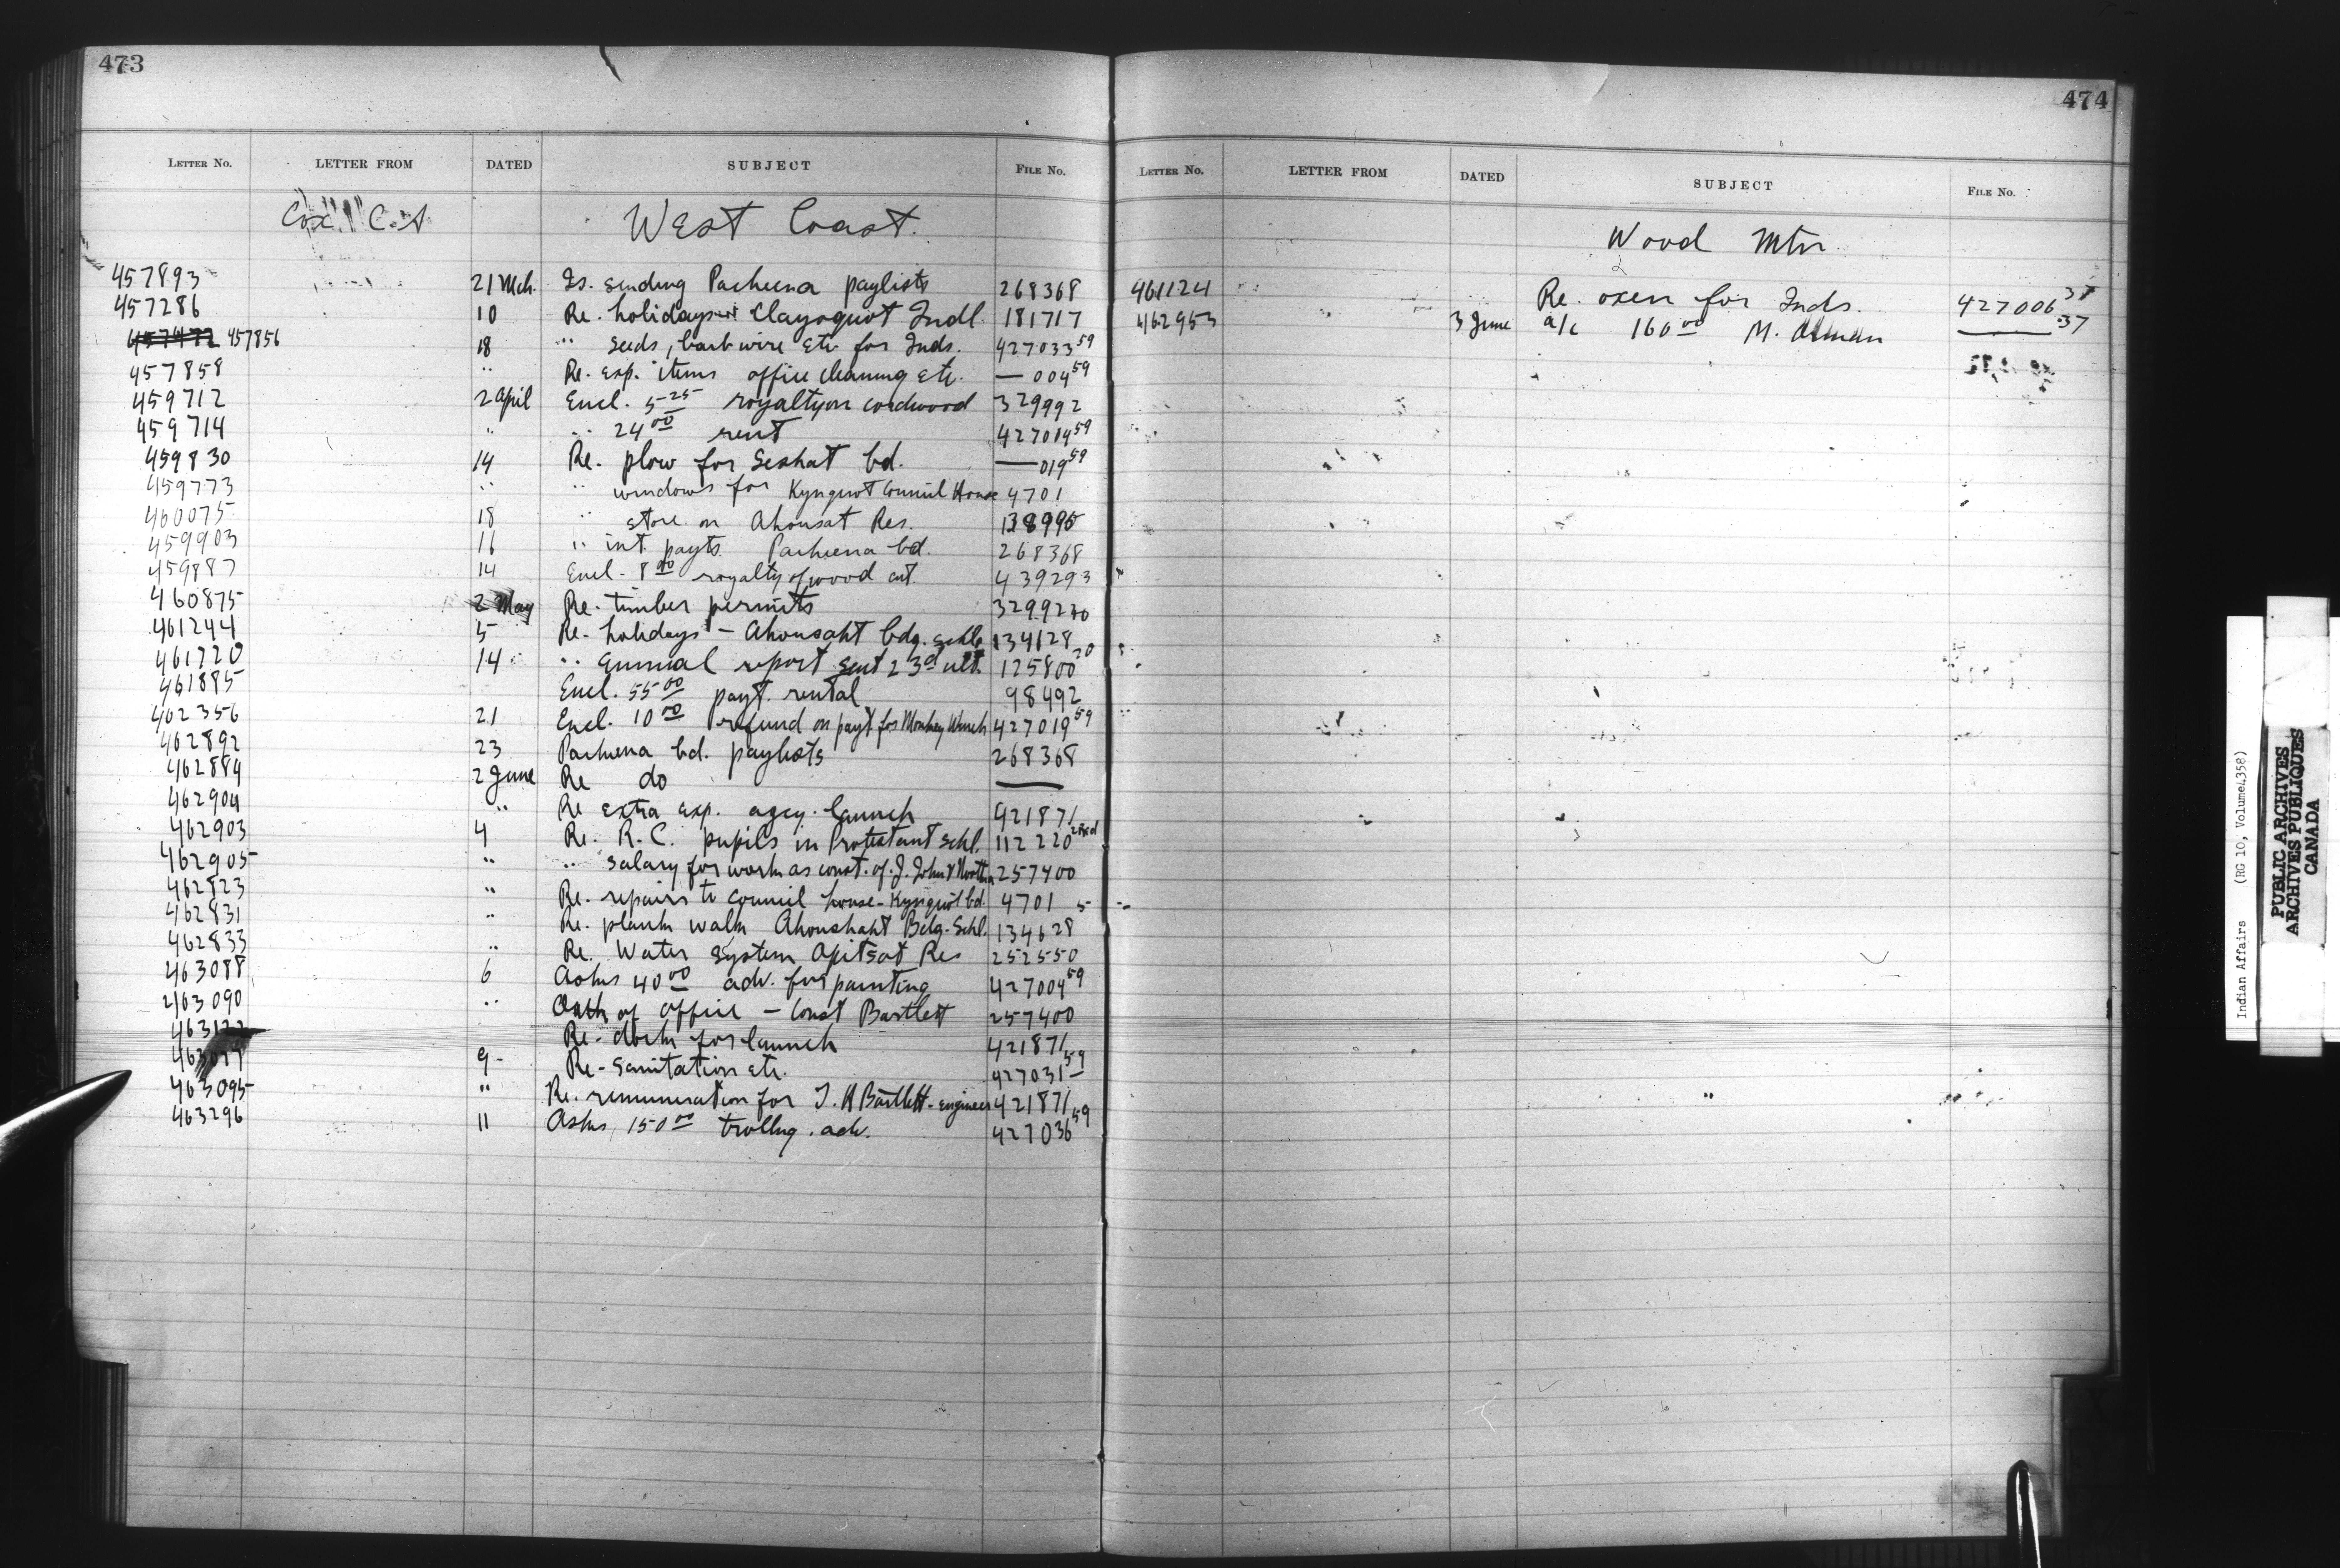 473
LETTER No. LETTER FROM DATED SUBJECT FILE No.
West Coast.
457893 21 Mch. Is. sending Pacheena paylists 268368
457286 10 Re. holidays Clayoquot Indl. 181717
457856 18 " seeds, barb wire etc for Inds. 427033 59
457858 " Re. exp. items office cleaning etc. — 004 59
459712 2 April Encl. 5 25 royalty on cordwood 329992
459714 " " 24 00 rent 427004 59
459830 14 Re. plow for Seshat bd. — 019 59
459773 " " windows for Kyuquot Council House 4701
460075 18 " store on Ahousat Res. 138995
459903 16 " int. payts. Pacheena bd. 268368
459887 14 Encl. 8 00 royalty of wood cut. 439293
460875 2 May Re. timber permits
461244 5 Re. holidays – Ahousaht bdg. schl. 134628
461720 14 " annual report sent 23d ult. 125800 20
461885 Encl. 55 00 payt. rental 98492
462356 21 Encl. 10 00 refund on payt for Monkey Wrench 427019 59
462892 23 Pacheena bd. paylists 268368
462884 2 June Re do —
462904 " Re extra exp. agcy. launch 421871
462903 4 Re. R.C. pupils in Protestant Schl. 112220
462905 " " salary for work as const. of J. John 257400
462823 " Re. repairs to council house – Kyuquot bd. 4701
462831 " Re. plank walk Ahoushaht Bdg. Schl. 134628
462833 " Re. Water System Opitsat Res 252550
463088 6 Asks 40 00 adv. for painting 427004 59
463090 " Oath of office – Const Bartlett 257400
Re. dock for launch 421871
9 Re. Sanitation etc. 427031 59
463095 " Re. remuneration for T. H Bartlett – engineer 421871
463296 11 Asks 150 00 trollng. adv. 427036 59
474
LETTER No. LETTER FROM DATED SUBJECT FILE No.
Wood Mtn
461124 Re. oxen for Inds. 427006 37
462953 3 June a/c 160 00 M. — 37
Indian Affairs (RG 10, Volume 4358)
PUBLIC ARCHIVES
ARCHIVES PUBLIQUES
CANADA